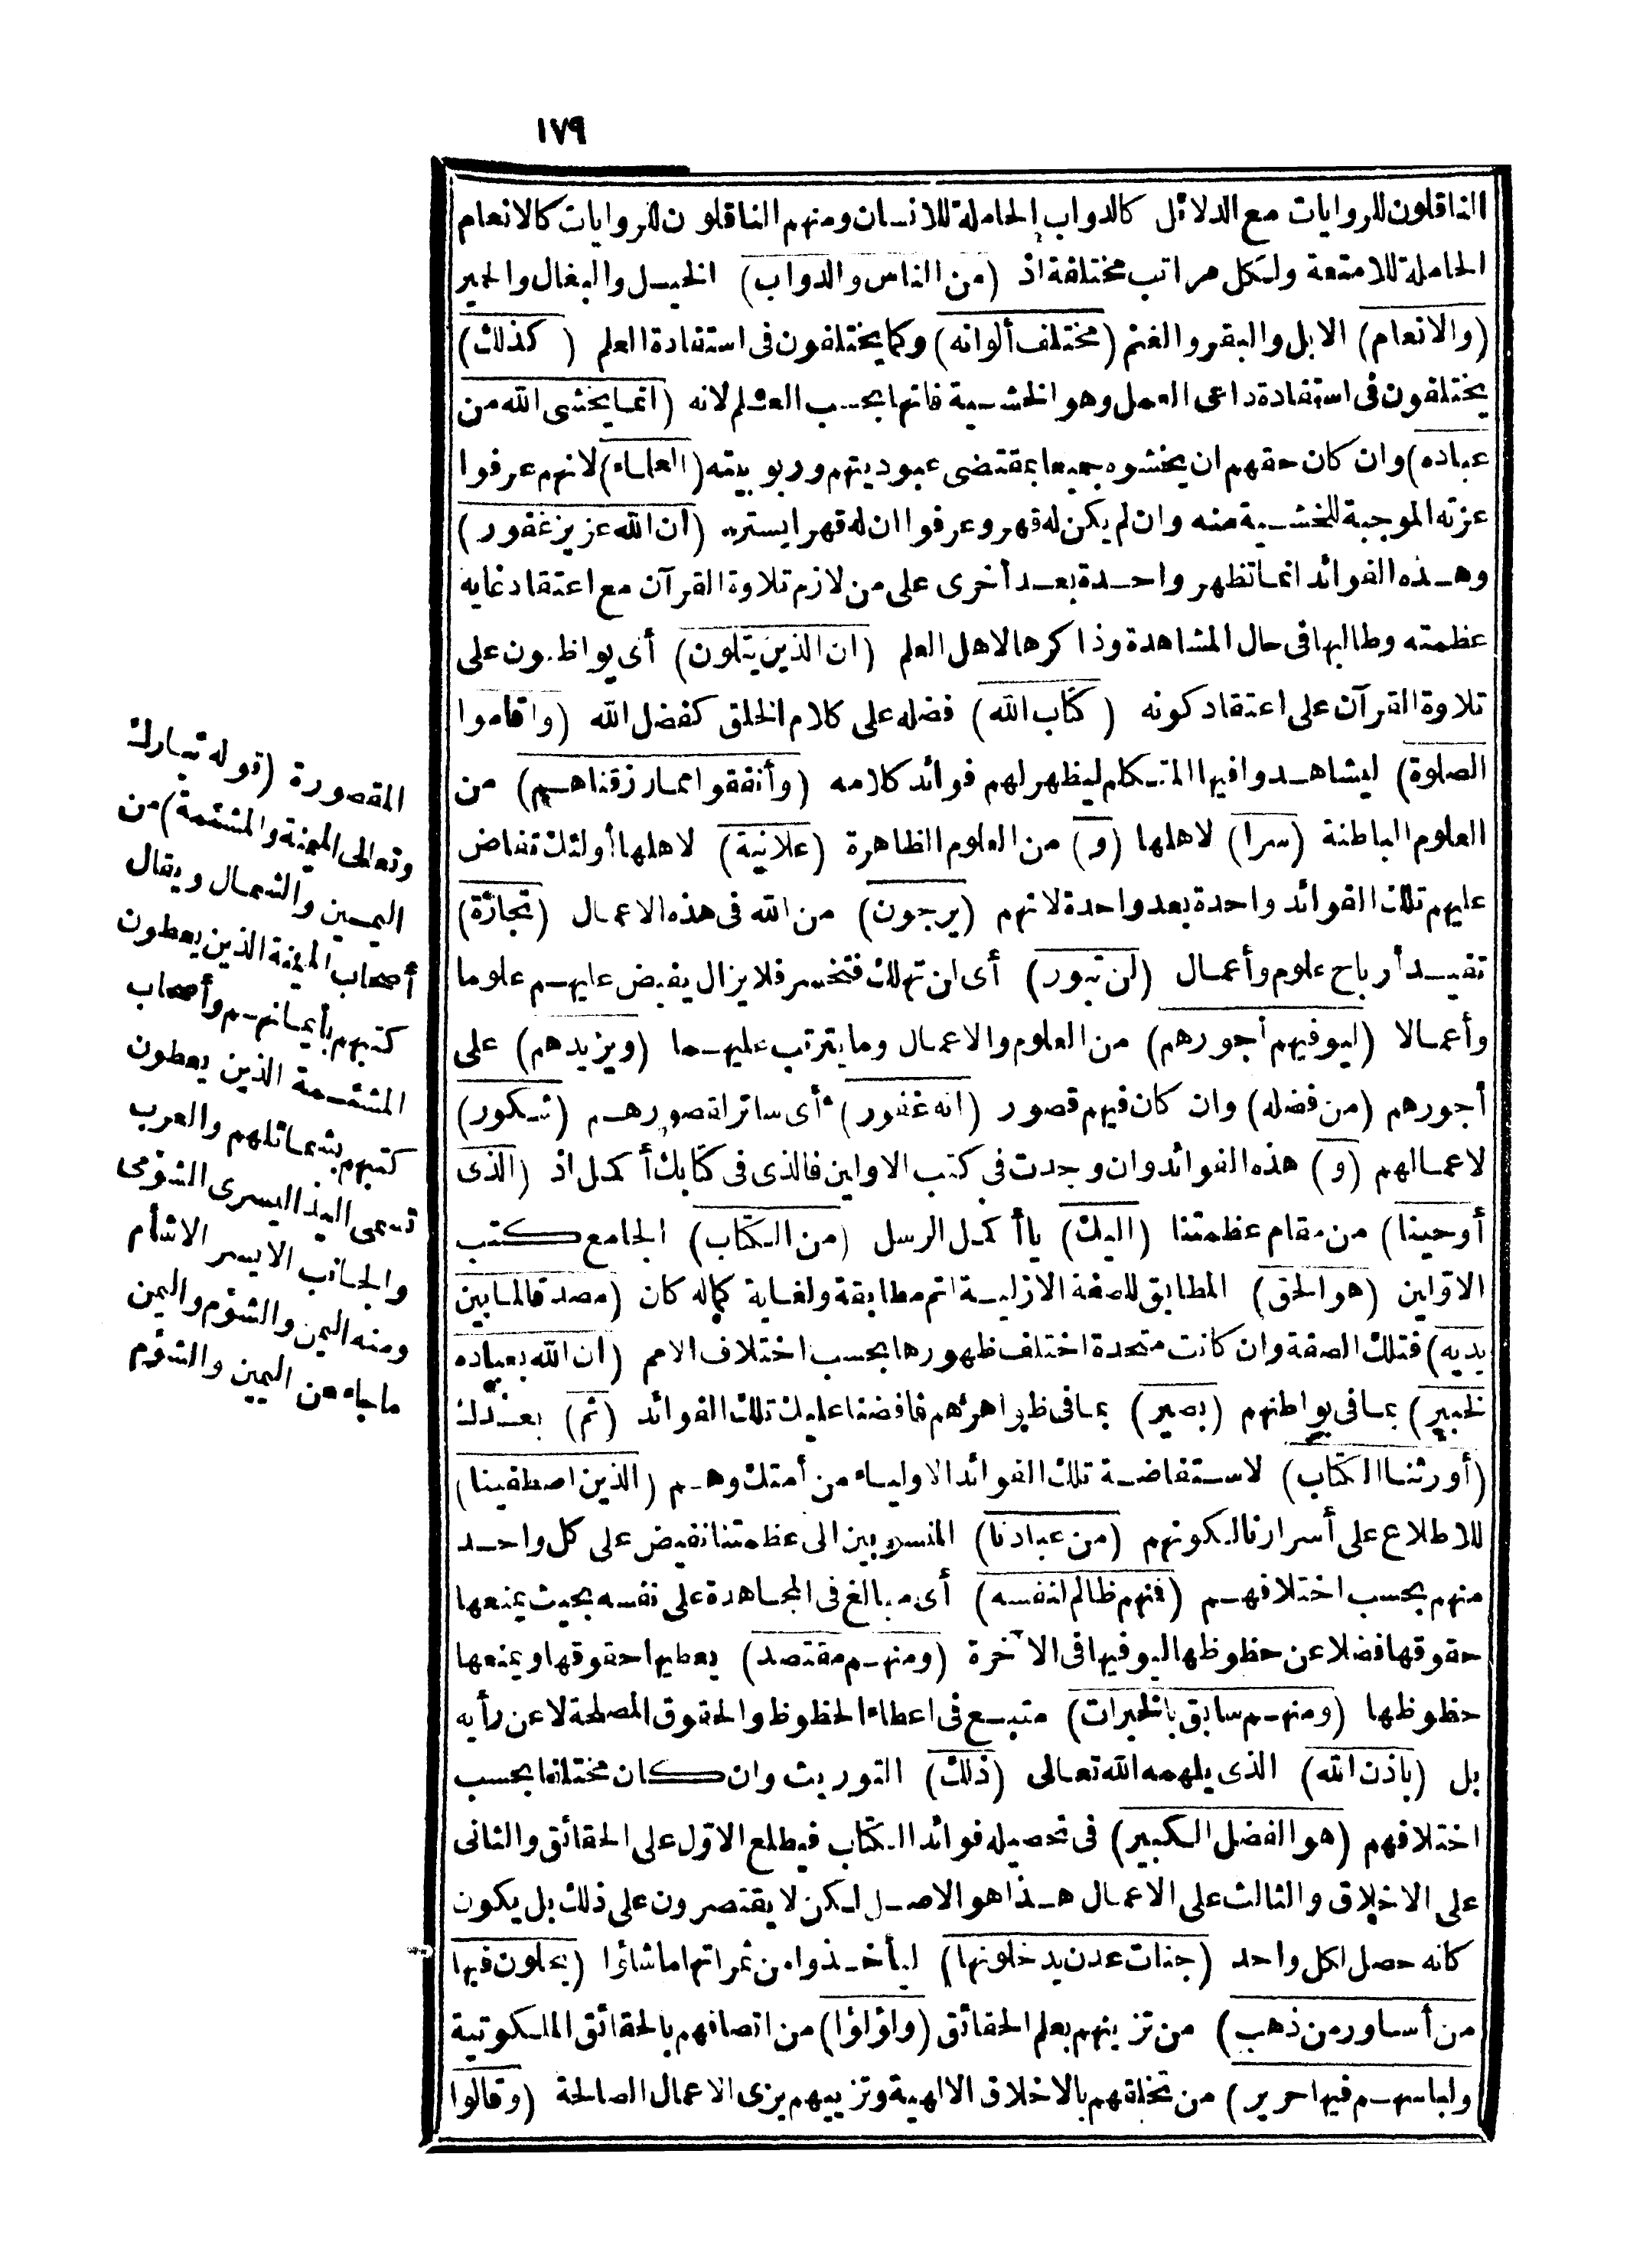 ١٧٩
الناقلون للروايات مع الدلائل كالدواب الحاملة للانسان ومنهم الناقلون للروايات كالانعام
الحاملة للامتعة ولكل مراتب مختلفة اذ (من الناس والدواب) الخيل والبغال والحمير
(والانعام) الابل والبقر والغنم (مختلف ألوانه) وكما يختلفون فى استفادة العلم (كذلك)
يختلفون فى استفادة داعى العمل وهو الخشية فانها بحسب العلم لانه (انما يخشى الله من
عباده) وان كان حقهم ان يخشوه جميعا بمقتضى عبوديتهم وربوبيته (العلماء) لانهم عرفوا
عزته الموجبة للخشية منه وان لم يكن له قهر وعرفوا ان له قهرا يستره (ان الله عزيز غفور)
وهذه الفوائد انما تظهر واحدة بعد أخرى على من لازم تلاوة القرآن مع اعتقاد غاية
عظمته وطالبها فى حال المشاهدة وذاكرها لاهل العلم (ان الذين يتلون) أى يواظبون على
تلاوة القرآن على اعتقاد كونه (كتاب الله) فضله على كلام الخلق كفضل الله (واقاموا
الصلوة) ليشاهدوا فيها المتكلم ليظهر لهم فوائد كلامه (وأنفقوا مما رزقناهم) من
العلوم الباطنة (سرا) لاهلها (و) من العلوم الظاهرة (علانية) لاهلها أولئك تفاض
عليهم تلك الفوائد واحدة بعد واحدة لانهم (يرجون) من الله فى هذه الاعمال (تجارة)
تفيد أرباح علوم وأعمال (لن تبور) أى لن تهلك فتخسر فلا يزال يفيض عليهم علوما
وأعمالا (ليوفيهم أجورهم) من العلوم والاعمال وما يترتب عليهما (ويزيدهم) على
أجورهم (من فضله) وان كان فيهم قصور (انه غفور) أى ساتر لقصورهم (شكور)
لاعمالهم (و) هذه الفوائد وان وجدت فى كتب الاولين فالذى فى كتابك أكمل اذ (الذى
أوحينا) من مقام عظمتنا (اليك) يا أكمل الرسل (من الكتاب) الجامع كتب
الاولين (هو الحق) المطابق للصفة الازلية اتم مطابقة ولغاية كماله كان (مصدقا لما بين
يديه) فتلك الصفة وان كانت متحدة اختلف ظهورها بحسب اختلاف الامم (ان الله بعباده
لخبير) بما فى بواطنهم (بصير) بما فى ظواهرهم فافضنا عليك تلك الفوائد (ثم) بعدك
(أورثنا الكتاب) لاستفاضة تلك الفوائد الاولياء من أمتك وهم (الذين اصطفينا)
للاطلاع على أسرارنا لكونهم (من عبادنا) المنسوبين الى عظمتنا نفيض على كل واحد
منهم بحسب اختلافهم (فمنهم ظالم لنفسه) أى مبالغ فى المجاهدة على نفسه بحيث يمنعها
حقوقها فضلا عن حظوظها ليوفيها فى الآخرة (ومنهم مقتصد) يعطيها حقوقها ويمنعها
حظوظها (ومنهم سابق بالخيرات) متبع فى اعطاء الحظوظ والحقوق المصلحة لا عن رأيه
بل (باذن الله) الذى يلهمه الله تعالى (ذلك) التوريث وان كان مختلفا بحسب
اختلافهم (هو الفضل الكبير) فى تحصيله فوائد الكتاب فيطلع الاول على الحقائق والثانى
على الاخلاق والثالث على الاعمال هذا هو الاصل لكن لا يقتصرون على ذلك بل يكون
كانه حصل لكل واحد (جنات عدن يدخلونها) ليأخذوا من ثمراتها ما شاؤا (يحلون فيها
من أساور من ذهب) من تزيينهم بعلم الحقائق (ولؤلؤا) من اتصافهم بالحقائق الملكوتية
ولباسهم فيها حرير) من تخلقهم بالاخلاق الالهية وتزييهم بزى الاعمال الصالحة (وقالوا
المقصورة (قوله تبارك
وتعالى الميمنة والمشئمة) من
اليمين والشمال ويقال
أصحاب الميمنة الذين يعطون
كتبهم بأيمانهم وأصحاب
المشئمة الذين يعطون
كتبهم بشمائلهم والعرب
تسمى اليد اليسرى الشؤمى
والجانب الايسر الاشأم
ومنه اليمن والشؤم واليمن
ما جاء عن اليمين والشؤم